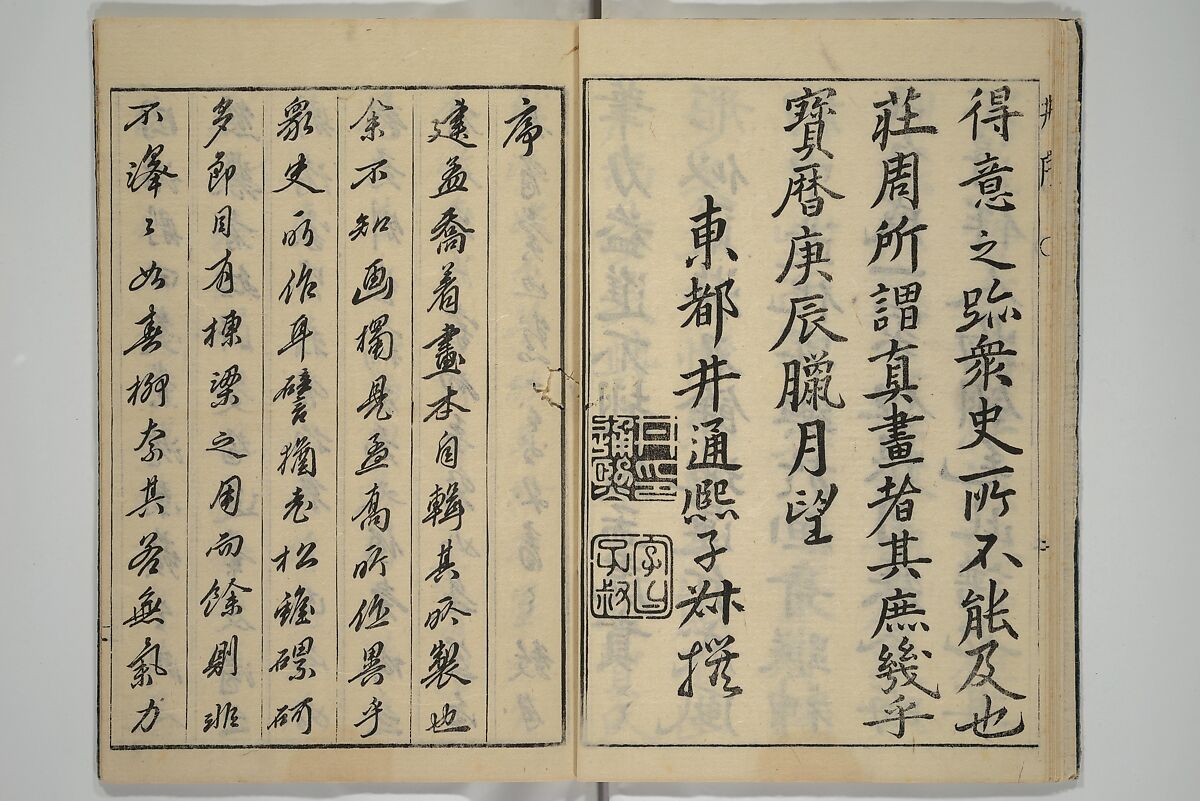 得意之跡衆史所不能及也
莊周所謂真畫者其庶幾乎
寶暦庚辰臘月望
東都井通熙子叔撰
序
建孟喬着畫本自輯其所製也
余不知画獨見孟喬所作異乎
衆史所作耳譬猶老松雖磥砢
多節目有棟梁之用而餘則非
不濯〻如春柳奈其若無氣力